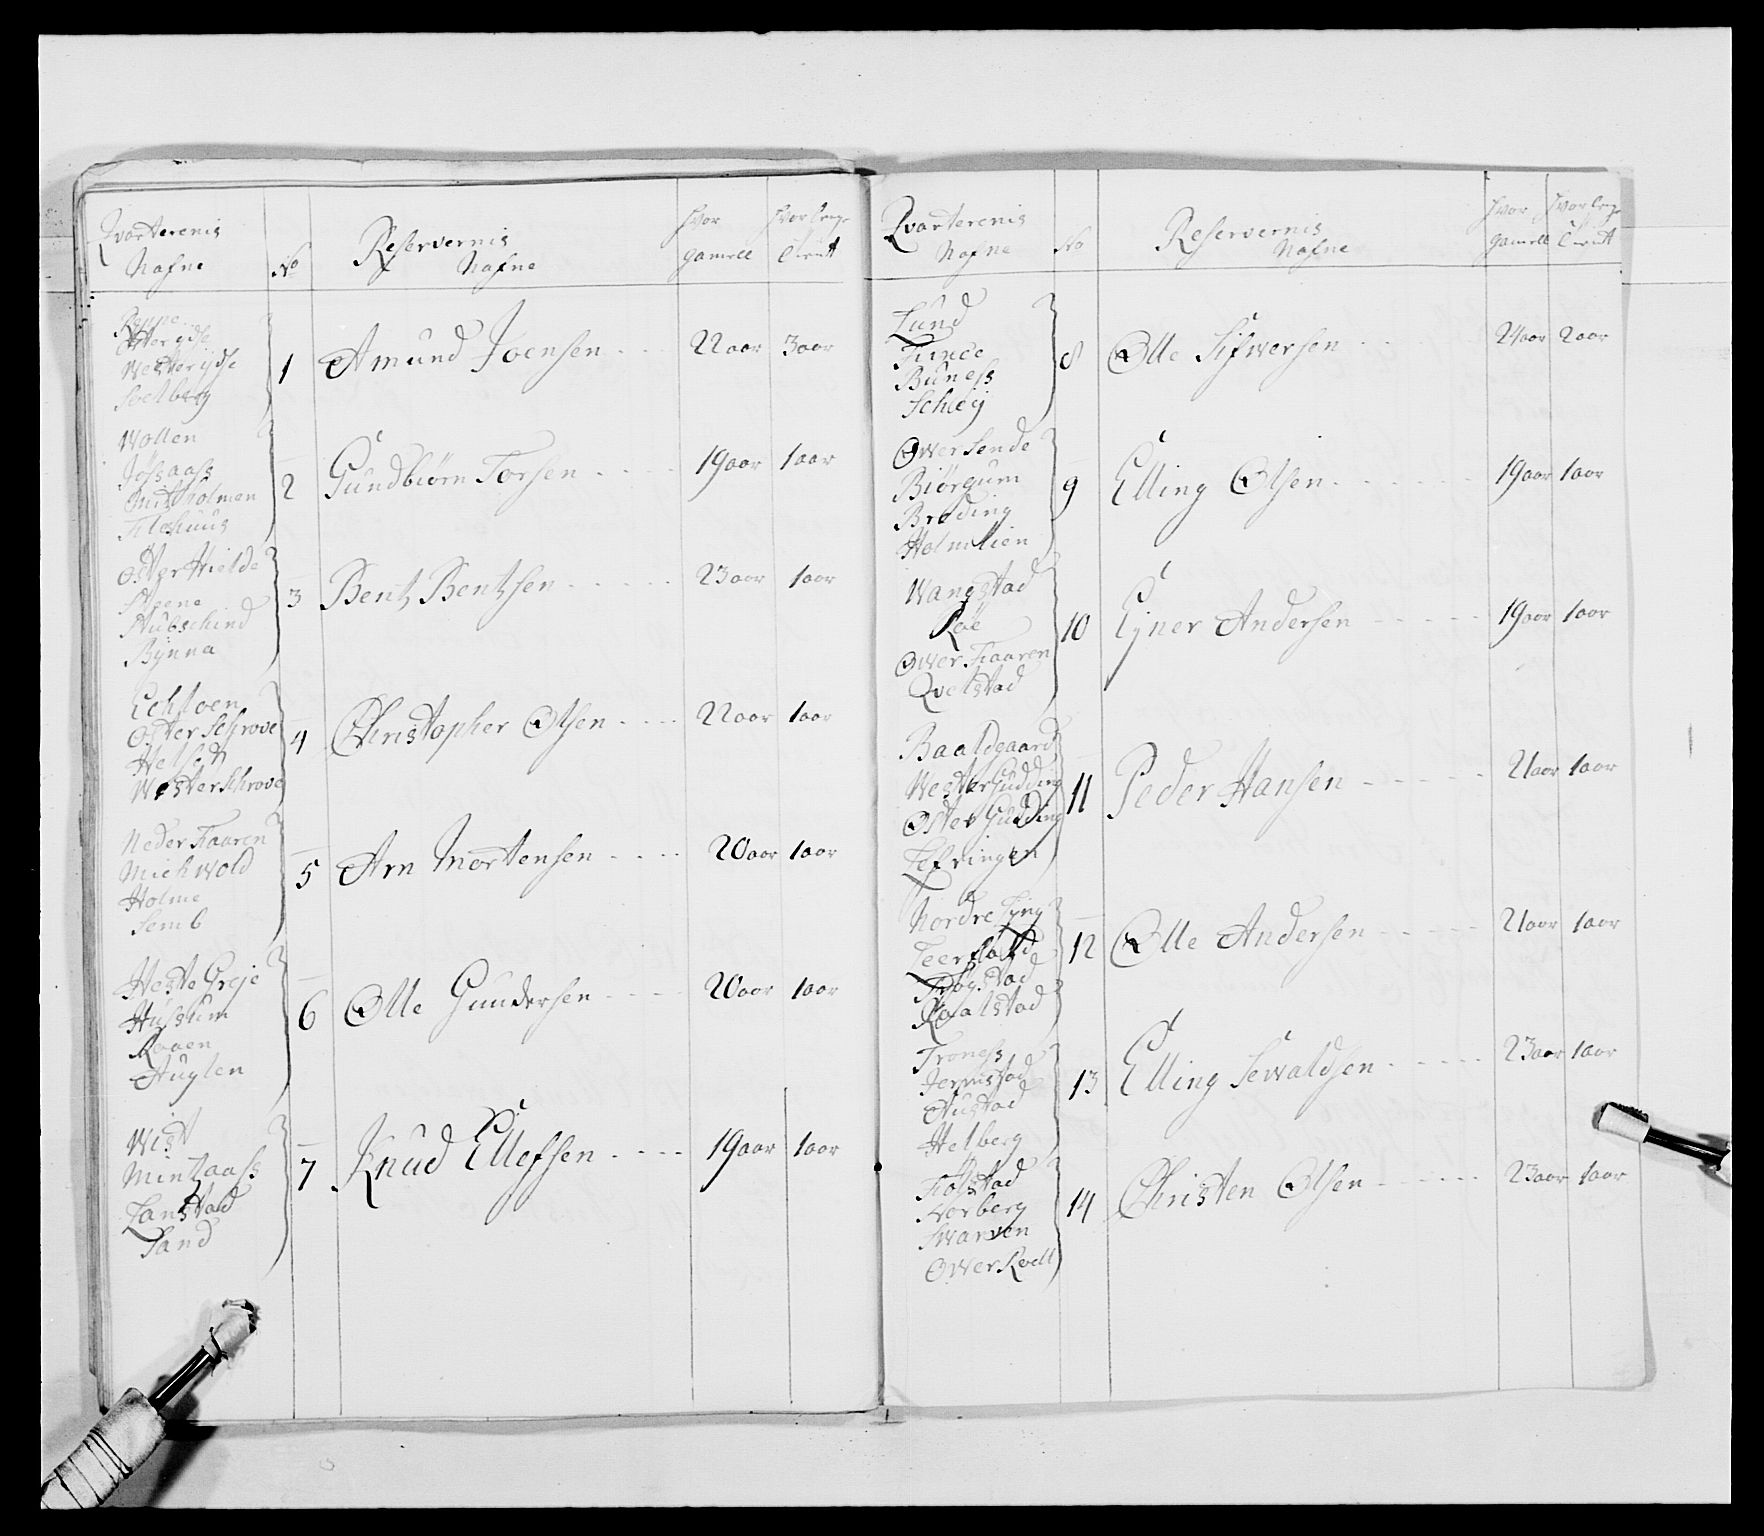 Qvarterenis Nafne
No
Reservernis Nafne
hvor gamell
hvor lenge tient
Reppe
Østerydse
Westerydse
Soelberg
1 Amund Joensen 22 aar 3 aar
Wollen
Jössaass
Mitt holmen
Fleskuus
2 Gundbiörn Torsen 19 aar 1 aar
Øster Hielde
Steene
Stubschind
Bynna
3 Bent Bentsen 23 aar 1 aar
Echloen
Øster Schrove
Helset
Wester Schrove
4 Christopher Olsen 22 aar 1 aar
Neder Faaren
Michwold
Holme
Semb
5 Arn Mortensen 20 aar 1 aar
Heste Greje
Hussum
Roaen
Auglen
6 Olle Gundersen 20 aar 1 aar
Wist
Mintzaass
Lanstad
Sand
7 Knud Ellefsen 19 aar 1 aar
Qvarterenis Nafne
No
Reservernis Nafne
hvor gamell
hvor lenge tient
Lund
Buness
Schley
8 Olle Sifwersen 24 aar 2 aar
Over Sende
Biörgum
Breding
Holmlien
9 Elling Olsen 19 aar 1 aar
Wangstad
Röe
Over Faaren
Qvelstad
10 Ejner Andersen 19 aar 1 aar
Baaldgaard
Wester Gudding
Øster Gudding
Lefringen
11 Peder Hansen 21 aar 1 aar
Nordre Lyng
Leerstad
Trögstad
Raalstad
12 Olle Andersen 21 aar 1 aar
Troness
Jermstad
Austad
Helberg
13 Elling Sewaldsen 23 aar 1 aar
Fiösstad
Norberg
Swarven
Over Kvell
14 Christen Olsen 23 aar 1 aar